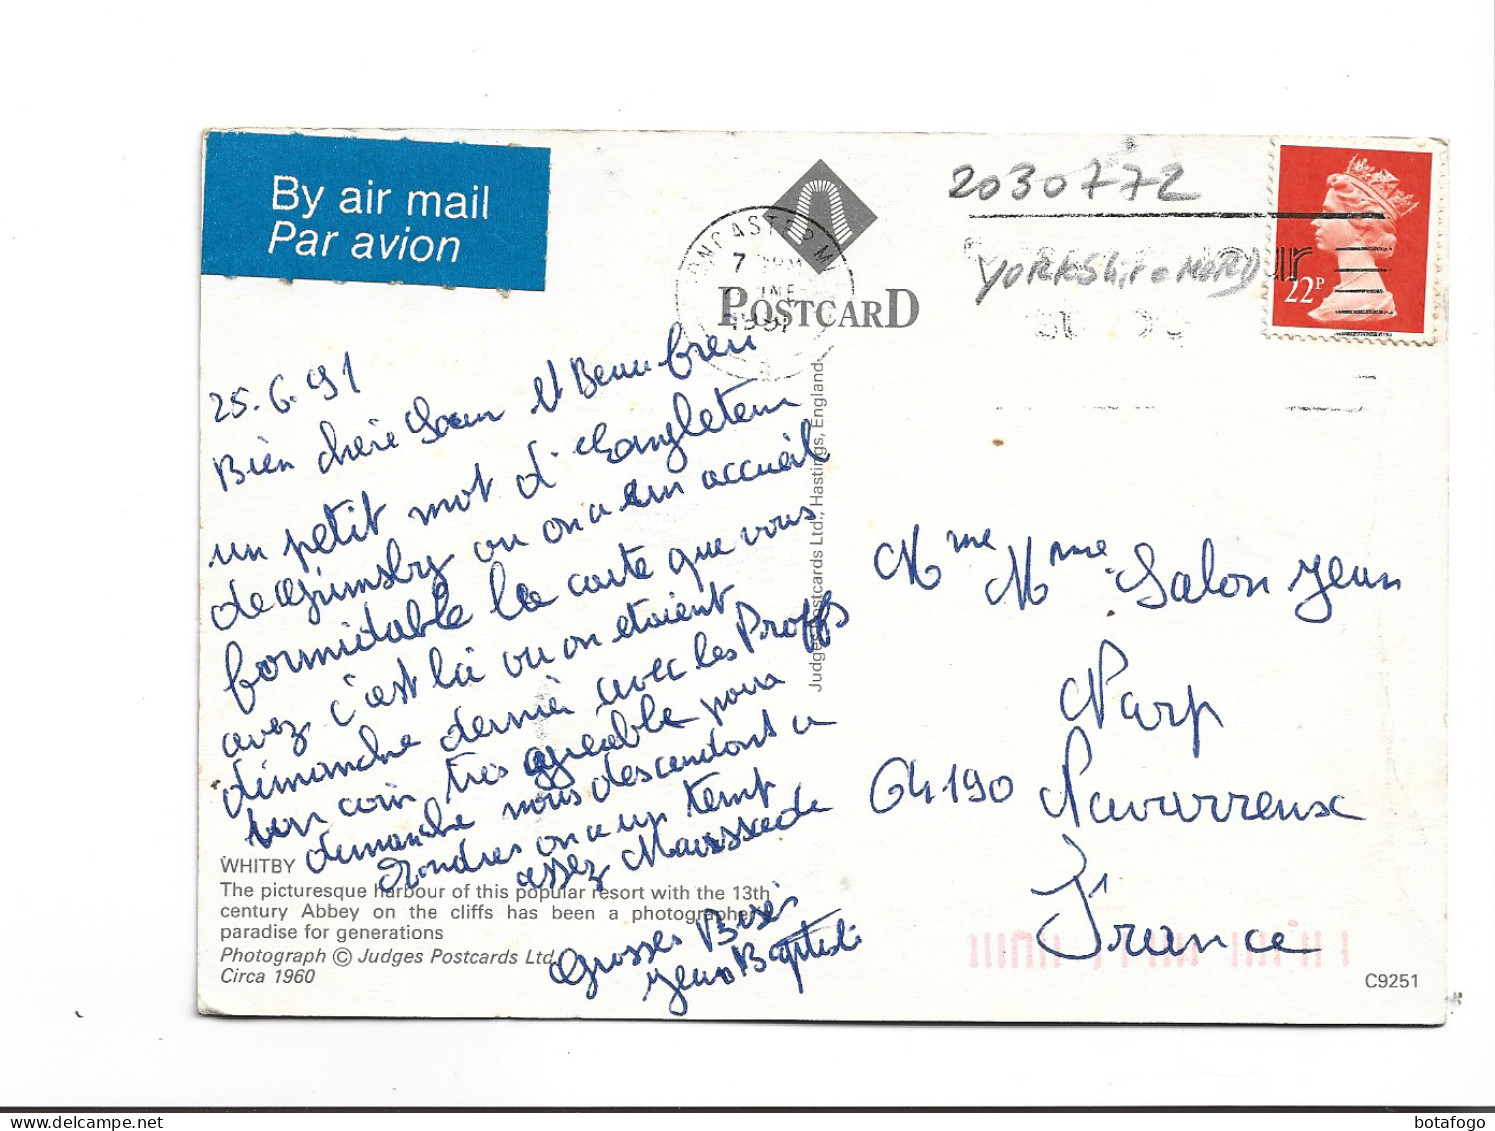 By air mail
Par avion
2030772
YORKShire NORD
22P
POSTCARD
7
1991
25.6.91
Bien chère Soeur et Beau frere
un petit mot d'Angleterre
de Grimsby ou on a eu un accueil
formidable la carte que vous
avez c'est là ou on etaient
dimanche dernier avec les Proffs
un coin très agréable pour
dimanche nous descendont a
Londres on a un temp
assez Maussade
Grosses Bises
Jean Baptiste
Judges Postcards Ltd., Hastings, England
Mme Salon Jean
Narp
64190 Navarrenx
France
WHITBY
The picturesque harbour of this popular resort with the 13th
century Abbey on the cliffs has been a photographer's
paradise for generations
Photograph © Judges Postcards Ltd
Circa 1960
C9251
botafogo